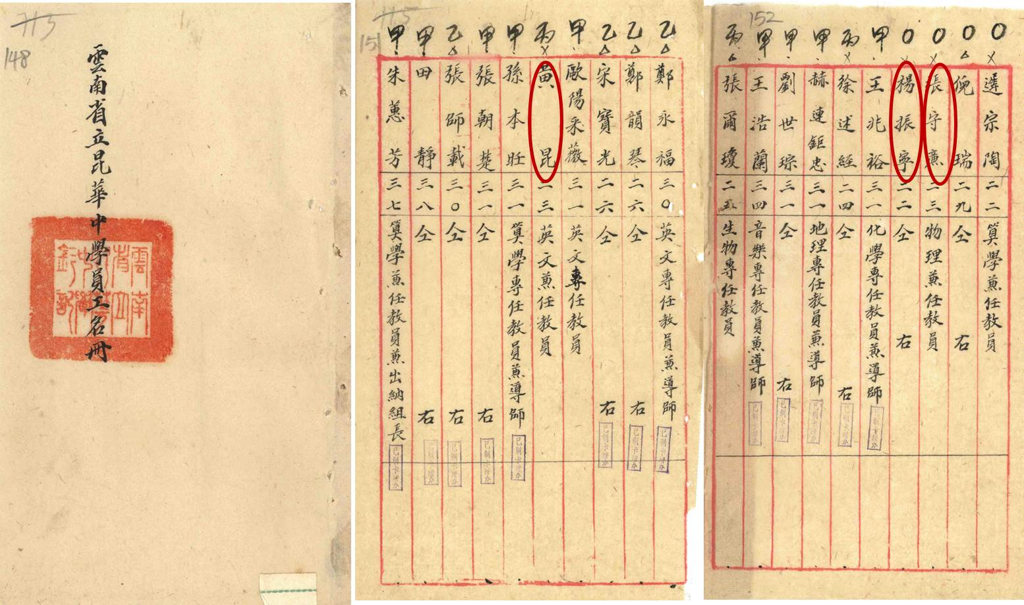 115
148
雲南省立昆華中學員工名冊
115
151
乙△ 鄭永福 三〇 英文專任教員兼導師
乙△ 鄭韻琴 二六 仝右
乙△ 宋寶光 二六 仝右
甲 歐陽采薇 三一 英文專任教員
丙× 黃昆 二三 英文兼任教員
甲 孫本旺 三一 算學專任教員兼導師
甲 張朝楚 三一 仝右
乙△ 張師載 三〇 仝右
甲 田靜 三八 仝右
甲 朱蕙芳 三七 算學兼任教員兼出納組長
152
〇× 遲宗陶 二二 算學兼任教員
〇△ 倪瑞 二九 仝右
〇× 張守廉 二三 物理兼任教員
〇 楊振寧 二二 仝右
甲 王兆裕 三一 化學專任教員兼導師
丙× 徐述經 二四 仝右
甲 赫連鉅忠 三一 地理專任教員兼導師
甲 劉世琮 三一 仝右
甲 王浩蘭 三四 音樂專任教員兼導師
丙△ 張爾瓊 二五 生物專任教員